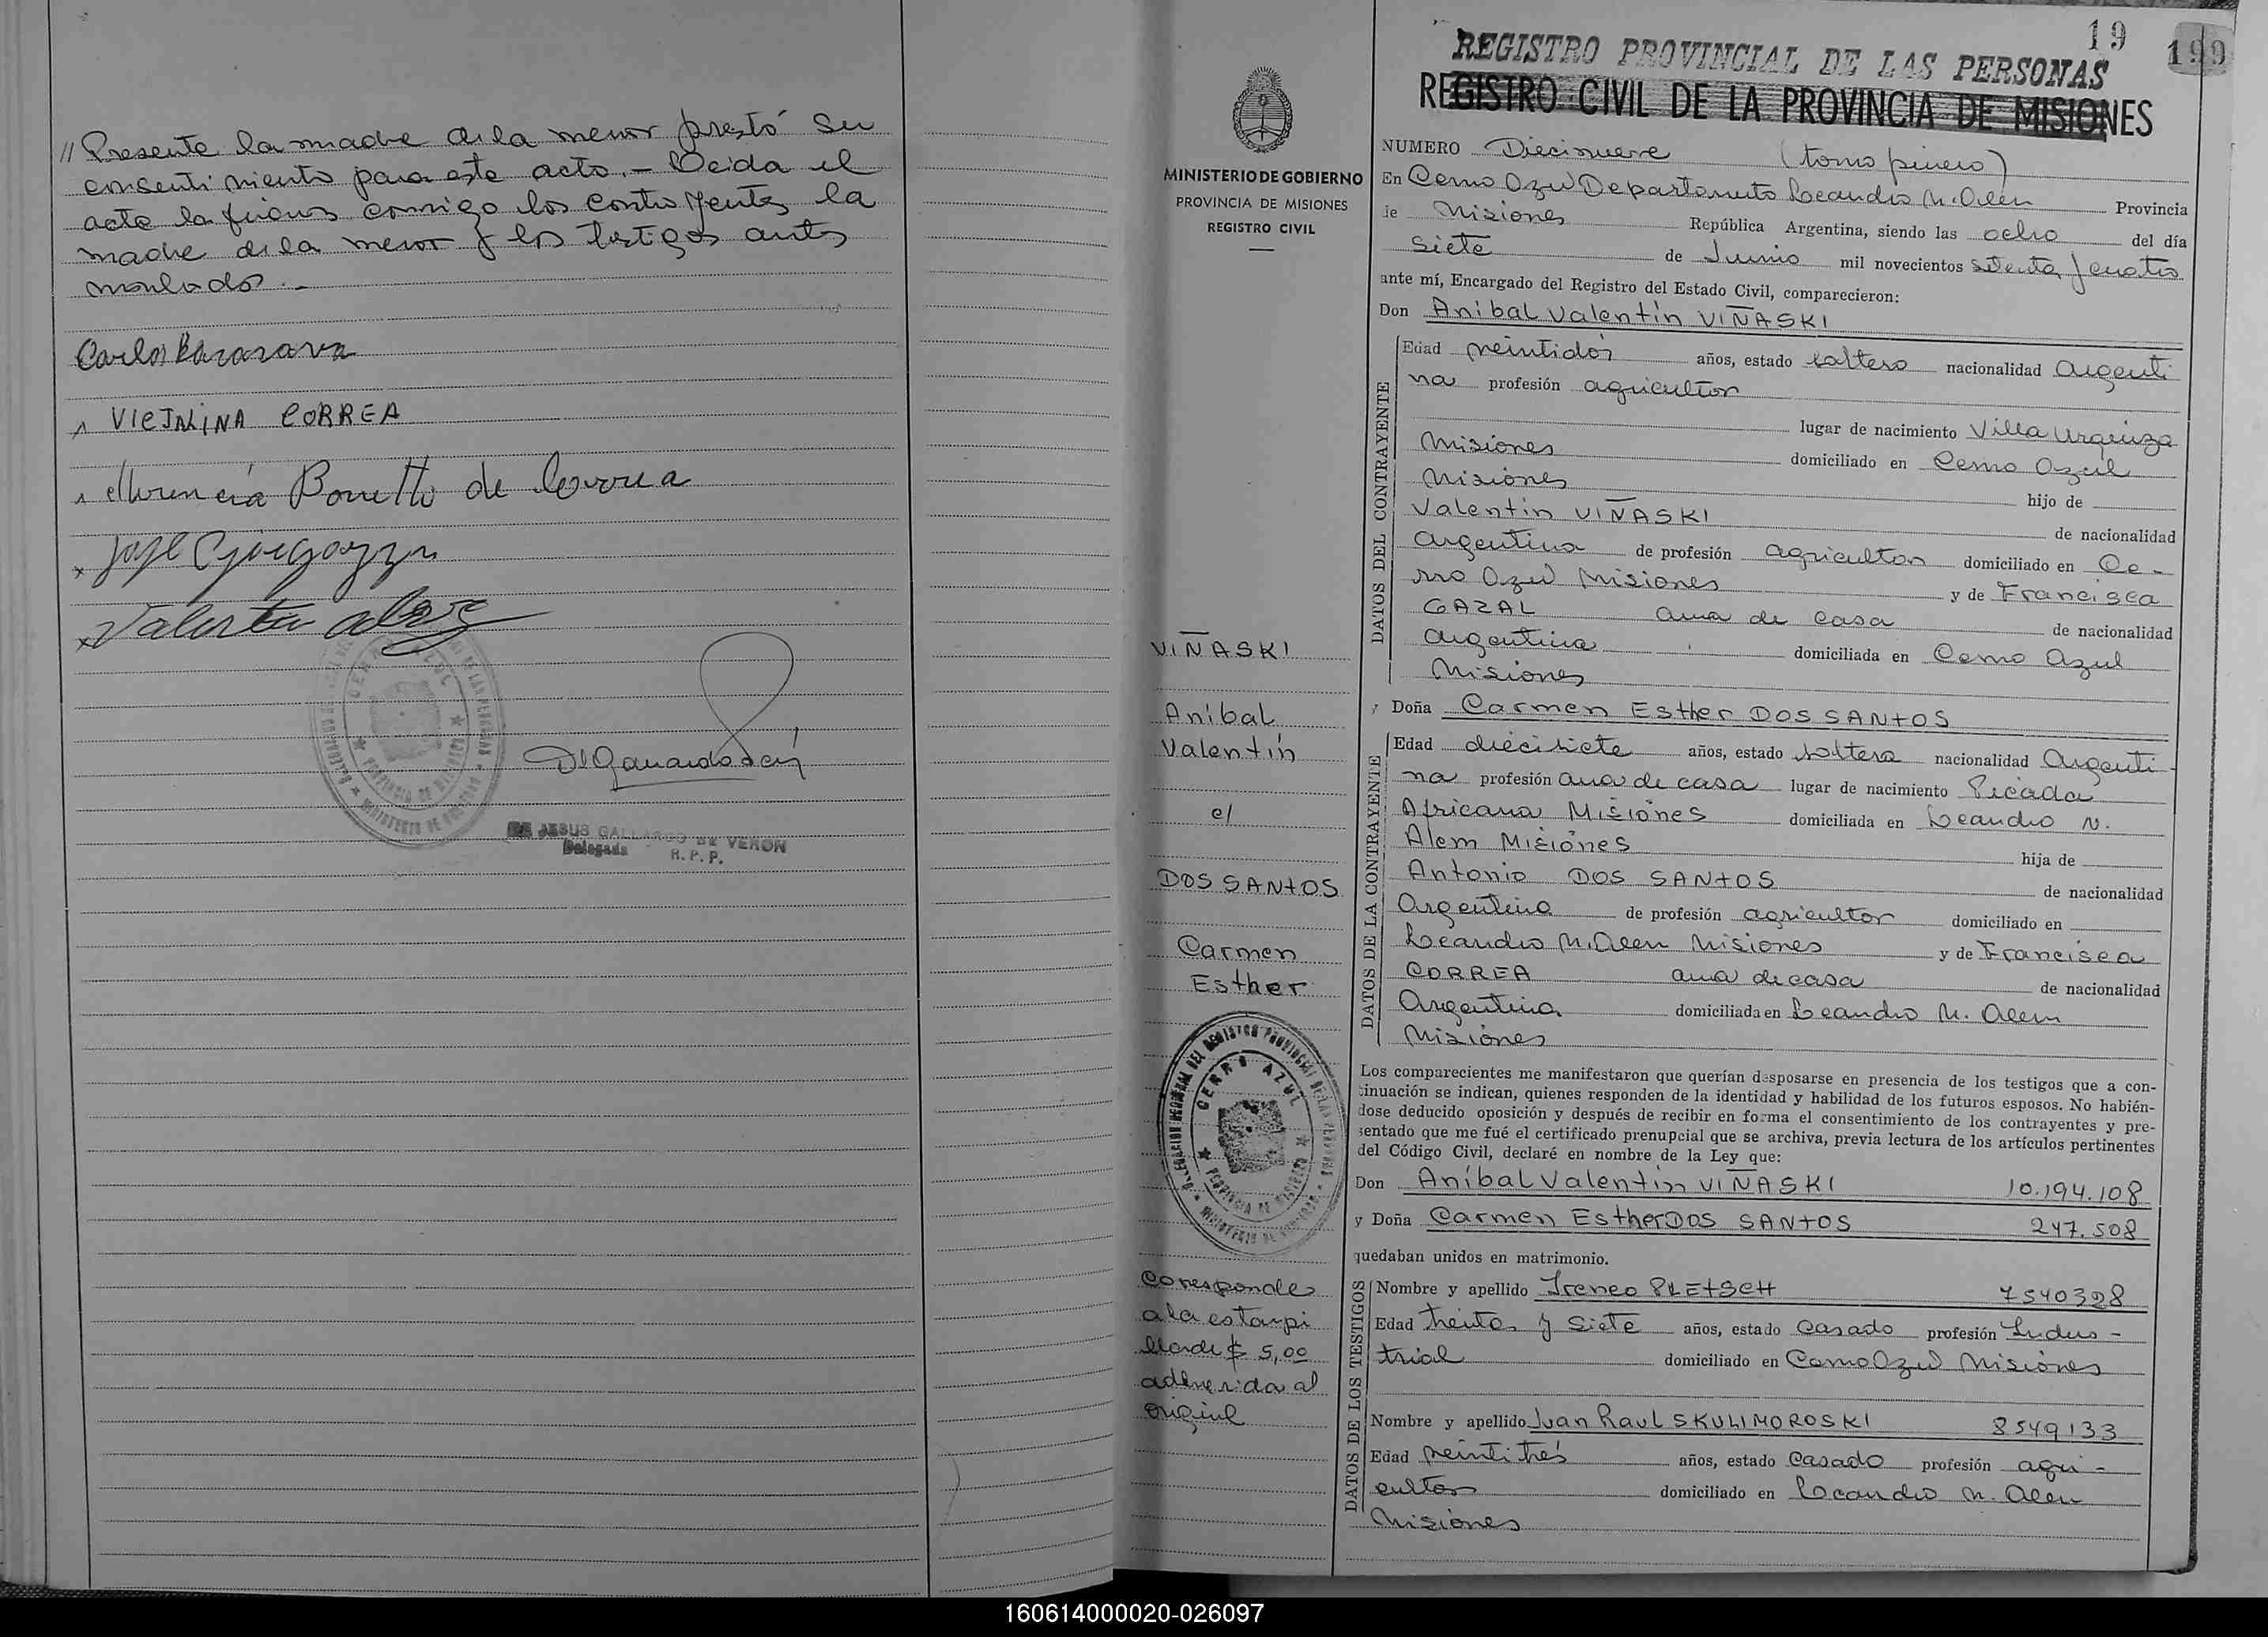 // Presente la madre de la menor prestó su
consentimiento para este acto.- Leida el
acta la firman conmigo los contrayentes la
madre de la menor y los testigos antes
nombrados.-
Carlos
VICTALINA CORREA
de Correa
José
Valentin
CERRO AZUL
DE JESUS GALLARDO DE VERON
Delegada R. P. P.
19
199
REGISTRO PROVINCIAL DE LAS PERSONAS
REGISTRO CIVIL DE LA PROVINCIA DE MISIONES
MINISTERIO DE GOBIERNO
PROVINCIA DE MISIONES
REGISTRO CIVIL
VIÑASKI
Aníbal
Valentín
c/
DOS SANTOS
Carmen
Esther
DELEGACION REGIONAL DEL REGISTRO PROVINCIAL DE LAS PERSONAS
CERRO AZUL
PROVINCIA DE MISIONES
MINISTERIO DE GOBIERNO
Corresponde
a la estampi
lla de $ 5,00
adherida al
original
NUMERO Diecinueve (tomo primero)
En Cerro Azul Departamento Leandro N. Alem Provincia
de Misiones República Argentina, siendo las ocho del día
siete de Junio mil novecientos setenta y cuatro
ante mí, Encargado del Registro del Estado Civil, comparecieron:
Don Aníbal Valentín VIÑASKI
DATOS DEL CONTRAYENTE
Edad veintidós años, estado soltero nacionalidad Argenti
na profesión agricultor
lugar de nacimiento Villa Urquiza
Misiones domiciliado en Cerro Azul
Misiones hijo de
Valentín VIÑASKI de nacionalidad
Argentina de profesión agricultor domiciliado en Ce-
rro Azul Misiones y de Francisca
GAZAL ama de casa de nacionalidad
Argentina domiciliada en Cerro Azul
Misiones
y Doña Carmen Esther DOS SANTOS
DATOS DE LA CONTRAYENTE
Edad diecisiete años, estado soltera nacionalidad Argenti-
na profesión ama de casa lugar de nacimiento Picada
Africana Misiones domiciliada en Leandro N.
Alem Misiones hija de
Antonio DOS SANTOS de nacionalidad
Argentina de profesión agricultor domiciliado en
Leandro N. Alem Misiones y de Francisca
CORREA ama de casa de nacionalidad
Argentina domiciliada en Leandro N. Alem
Misiones
Los comparecientes me manifestaron que querían desposarse en presencia de los testigos que a con-
tinuación se indican, quienes responden de la identidad y habilidad de los futuros esposos. No habién-
dose deducido oposición y después de recibir en forma el consentimiento de los contrayentes y pre-
sentado que me fué el certificado prenupcial que se archiva, previa lectura de los artículos pertinentes
del Código Civil, declaré en nombre de la Ley que:
Don Aníbal Valentín VIÑASKI 10.194.108
y Doña Carmen Esther DOS SANTOS 247.508
quedaban unidos en matrimonio.
DATOS DE LOS TESTIGOS
Nombre y apellido Ireneo PLETSCH 7540328
Edad treinta y siete años, estado casado profesión Indus-
trial domiciliado en Cerro Azul Misiones
Nombre y apellido Juan Raul SKULIMOROSKI 8549133
Edad veintitrés años, estado casado profesión agri-
cultor domiciliado en Leandro N. Alem
Misiones
160614000020-026097